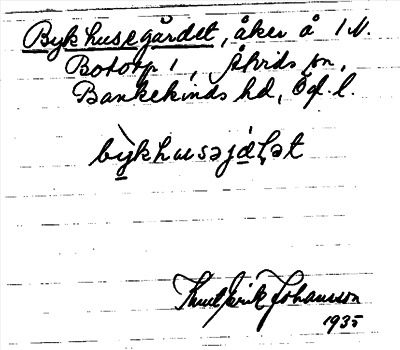 Bykhusegärdet, åker å 1N.
Botorp 1, Åtvids sn,
Bankekinds hd, Ög. l.
bỳkhusəjáḷət
Knut Erik Johansson
1935